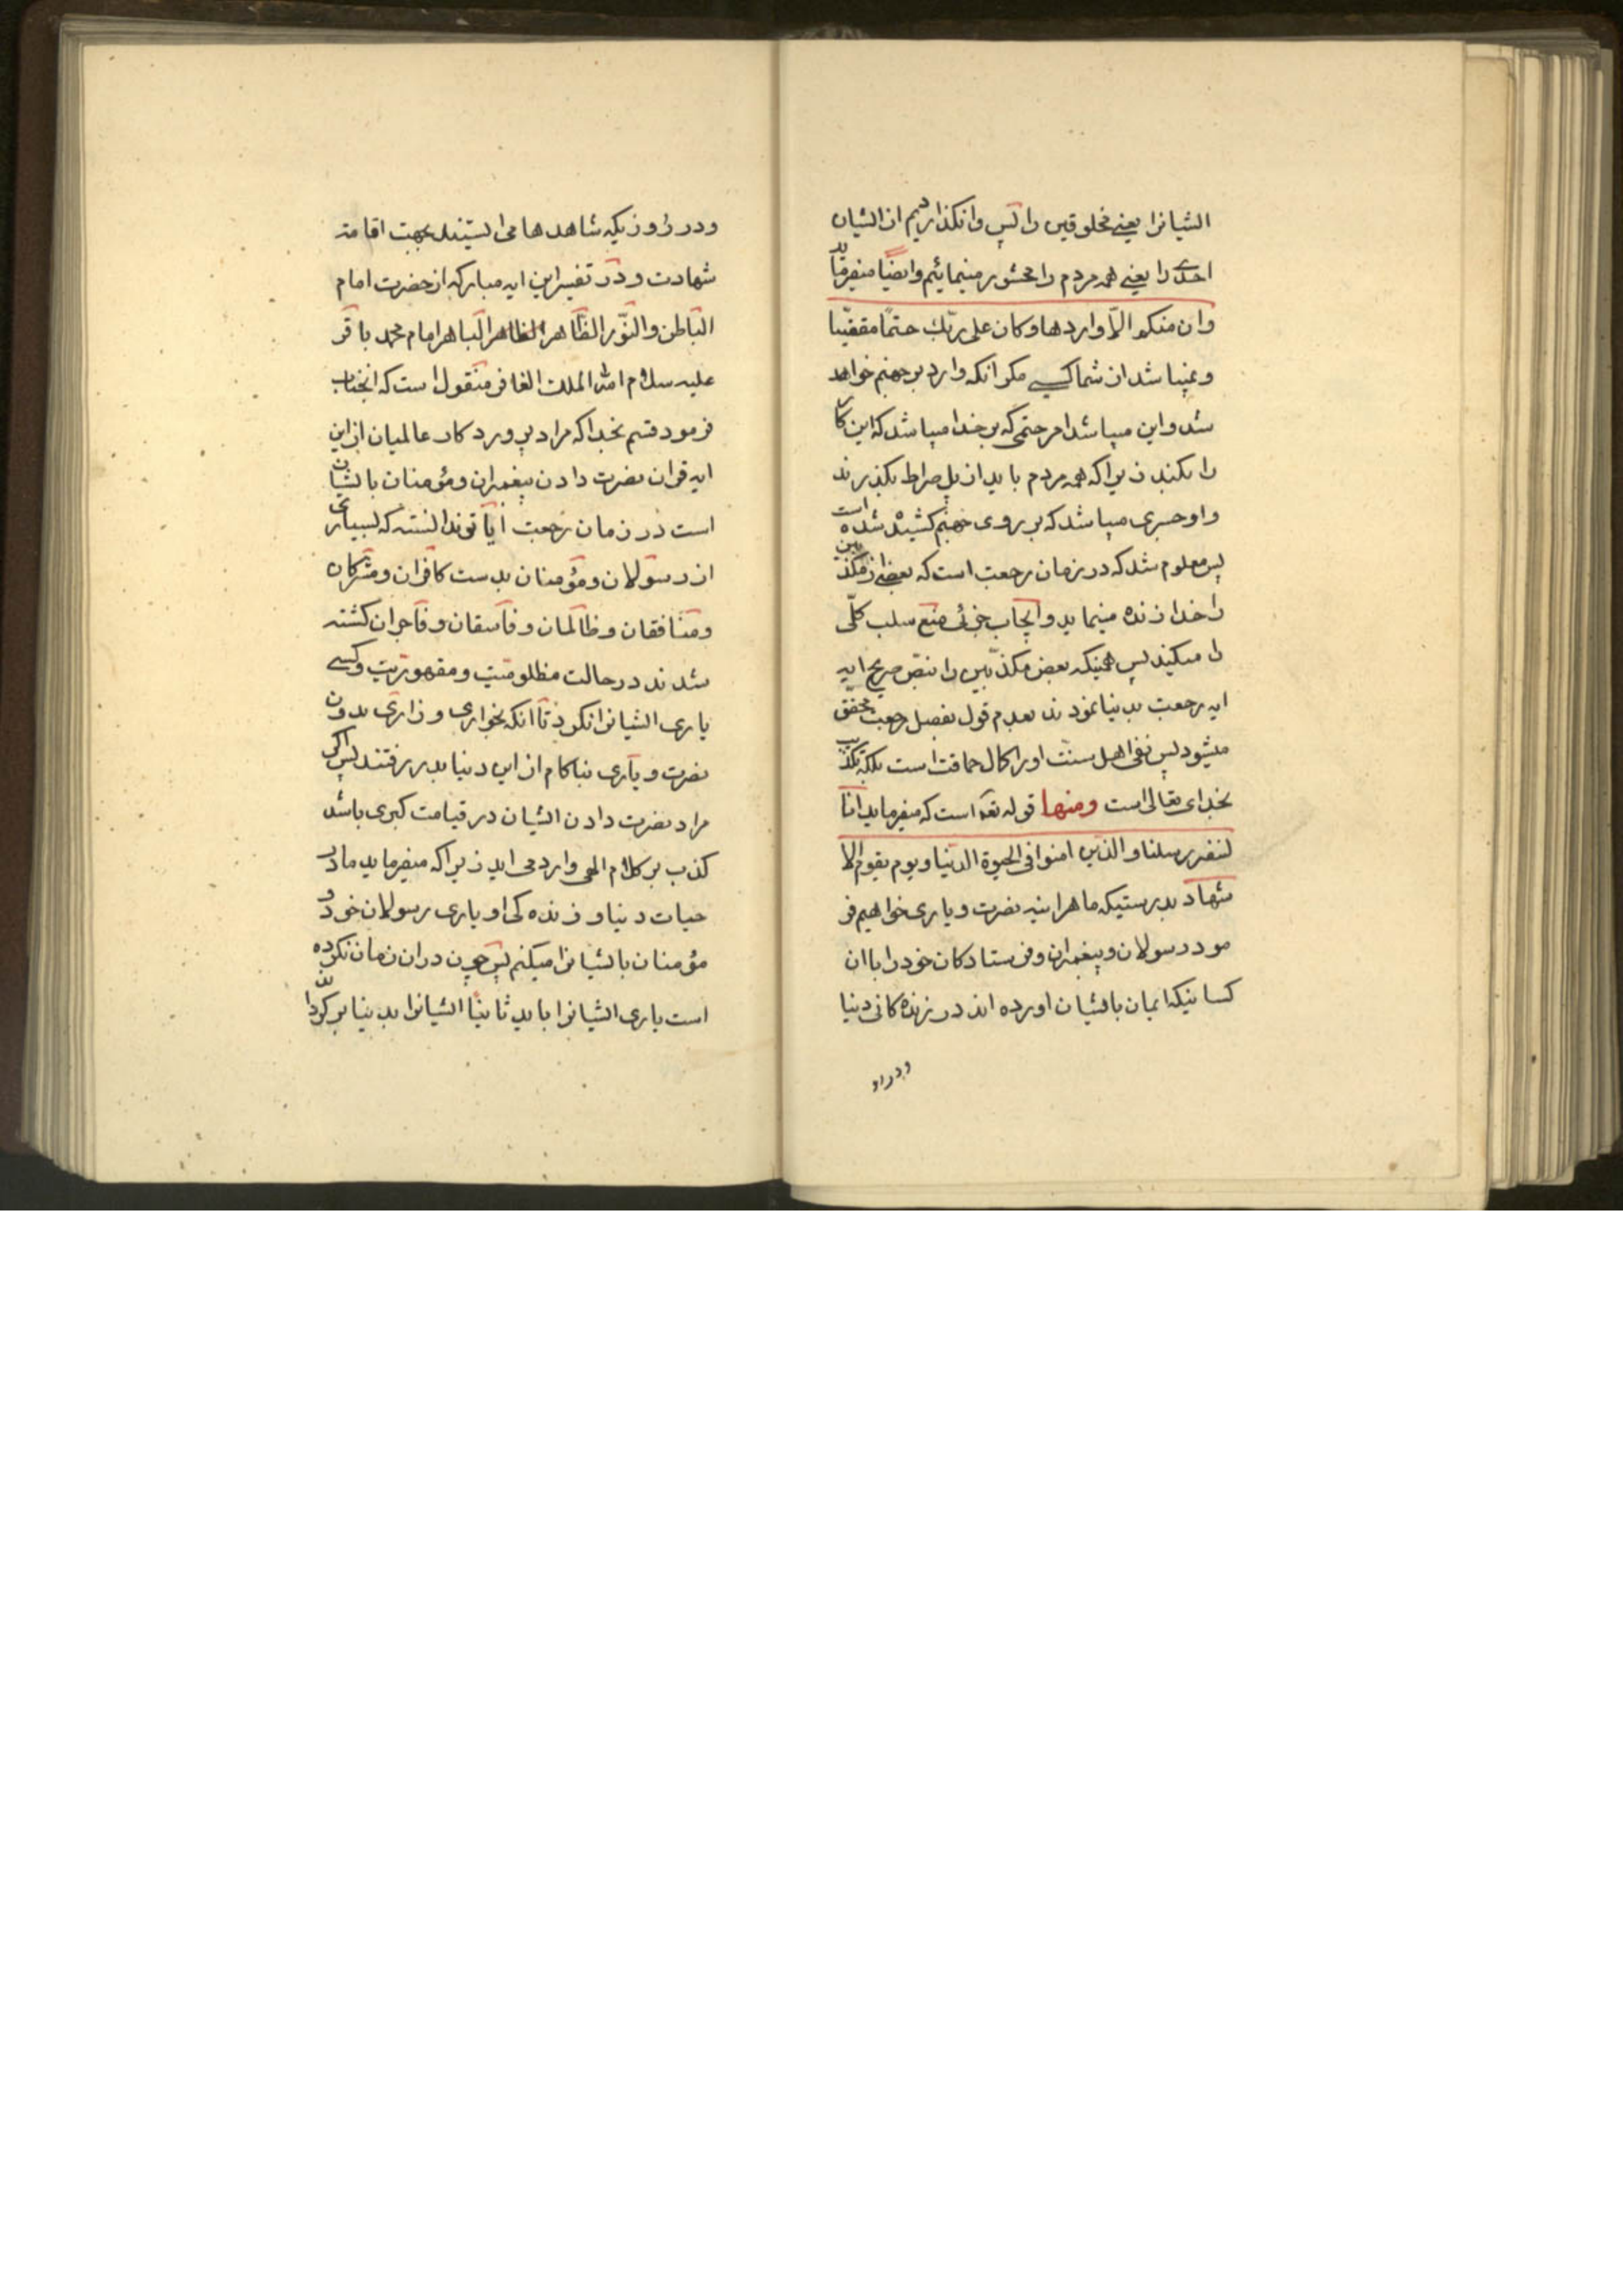 ایشانرا یعنی مخلوقین را پس وانکذاردیم از ایشان
احدی را یعنی همه مردم را محشور مینمائیم وایضًا میفرماید
وان منکم الّا واردها وکان علی ربّک حتمًا مقضّیا
ونمیباشد از شما کسی مکر انکه وارد بر جهنم خواهد
شد و این میباشد امر حتمی که بر خدا میباشد که این کار
را بکند زیرا که همه مردم باید از پل صراط بکذرند
واو جسری میباشد که بر روی جهنم کشیده شده است
پس معلوم شد که در زمان رجعت است که بعضی از مکذبین
را خدا زنده مینماید و ایجاب جزئی منع سلب کلّی
را میکند پس همینکه بعض مکذّبین را بنصّ صریح ایه
ایه رجعت بدنیا نمودند بعدم قول بفصل رجعت محقق
میشود پس نفی اهل سنت او را کمال حماقت است بلکه تکذیب
بخدای تعالی است ومنها قوله تعه است که میفرماید انّا
لننصر رسلنا والذین امنوا فی الحیوة الدنیا ویوم یقوم الا
شهاد بدرستیکه ما هراینه نصرت ویاری خواهیم فر
مود رسولان وپیغمبران وفرستادکان خود را با ان
کسانیکه ایمان بایشان اورده اند در زنده کانی دنیا
ودر رو
ودر روزیکه شاهدها می ایستند بجهت اقامته
شهادت ودر تفسیر این ایه مبارکه از حضرت امام
الباطن والنّور الظّاهر الطاهر الباهر امام محمد باقر
علیه سلام الله الملک الغافر منقول است که انجناب
فرمود قسم بخدا که مراد پرورد کار عالمیان از این
ایه قران نصرت دادن پیغمبران ومؤمنان بایشان
است در زمان رجعت ایا تو ندانسته که بسیاری
از رسولان ومؤمنان بدست کافران ومشرکان
ومنافقان وظالمان وفاسقان وفاجران کشته
شدند در حالت مظلومیت ومقهوریت وکسی
یاری ایشانرا نکرد تا انکه بخواری وزاری بدون
نصرت ویاری بناکام از این دنیا بدر رفتند پس اکر
مراد نصرت دادن ایشان در قیامت کبری باشد
کذب بر کلام الهی وارد می اید زیرا که میفرماید ما در
حیات دنیا و زنده کی او یاری رسولان خود و
مؤمنان بایشانرا میکنم پس چون در ان زمان نکرده
است یاری ایشانرا باید ثانیًا ایشانرا بدنیا بر کرداند